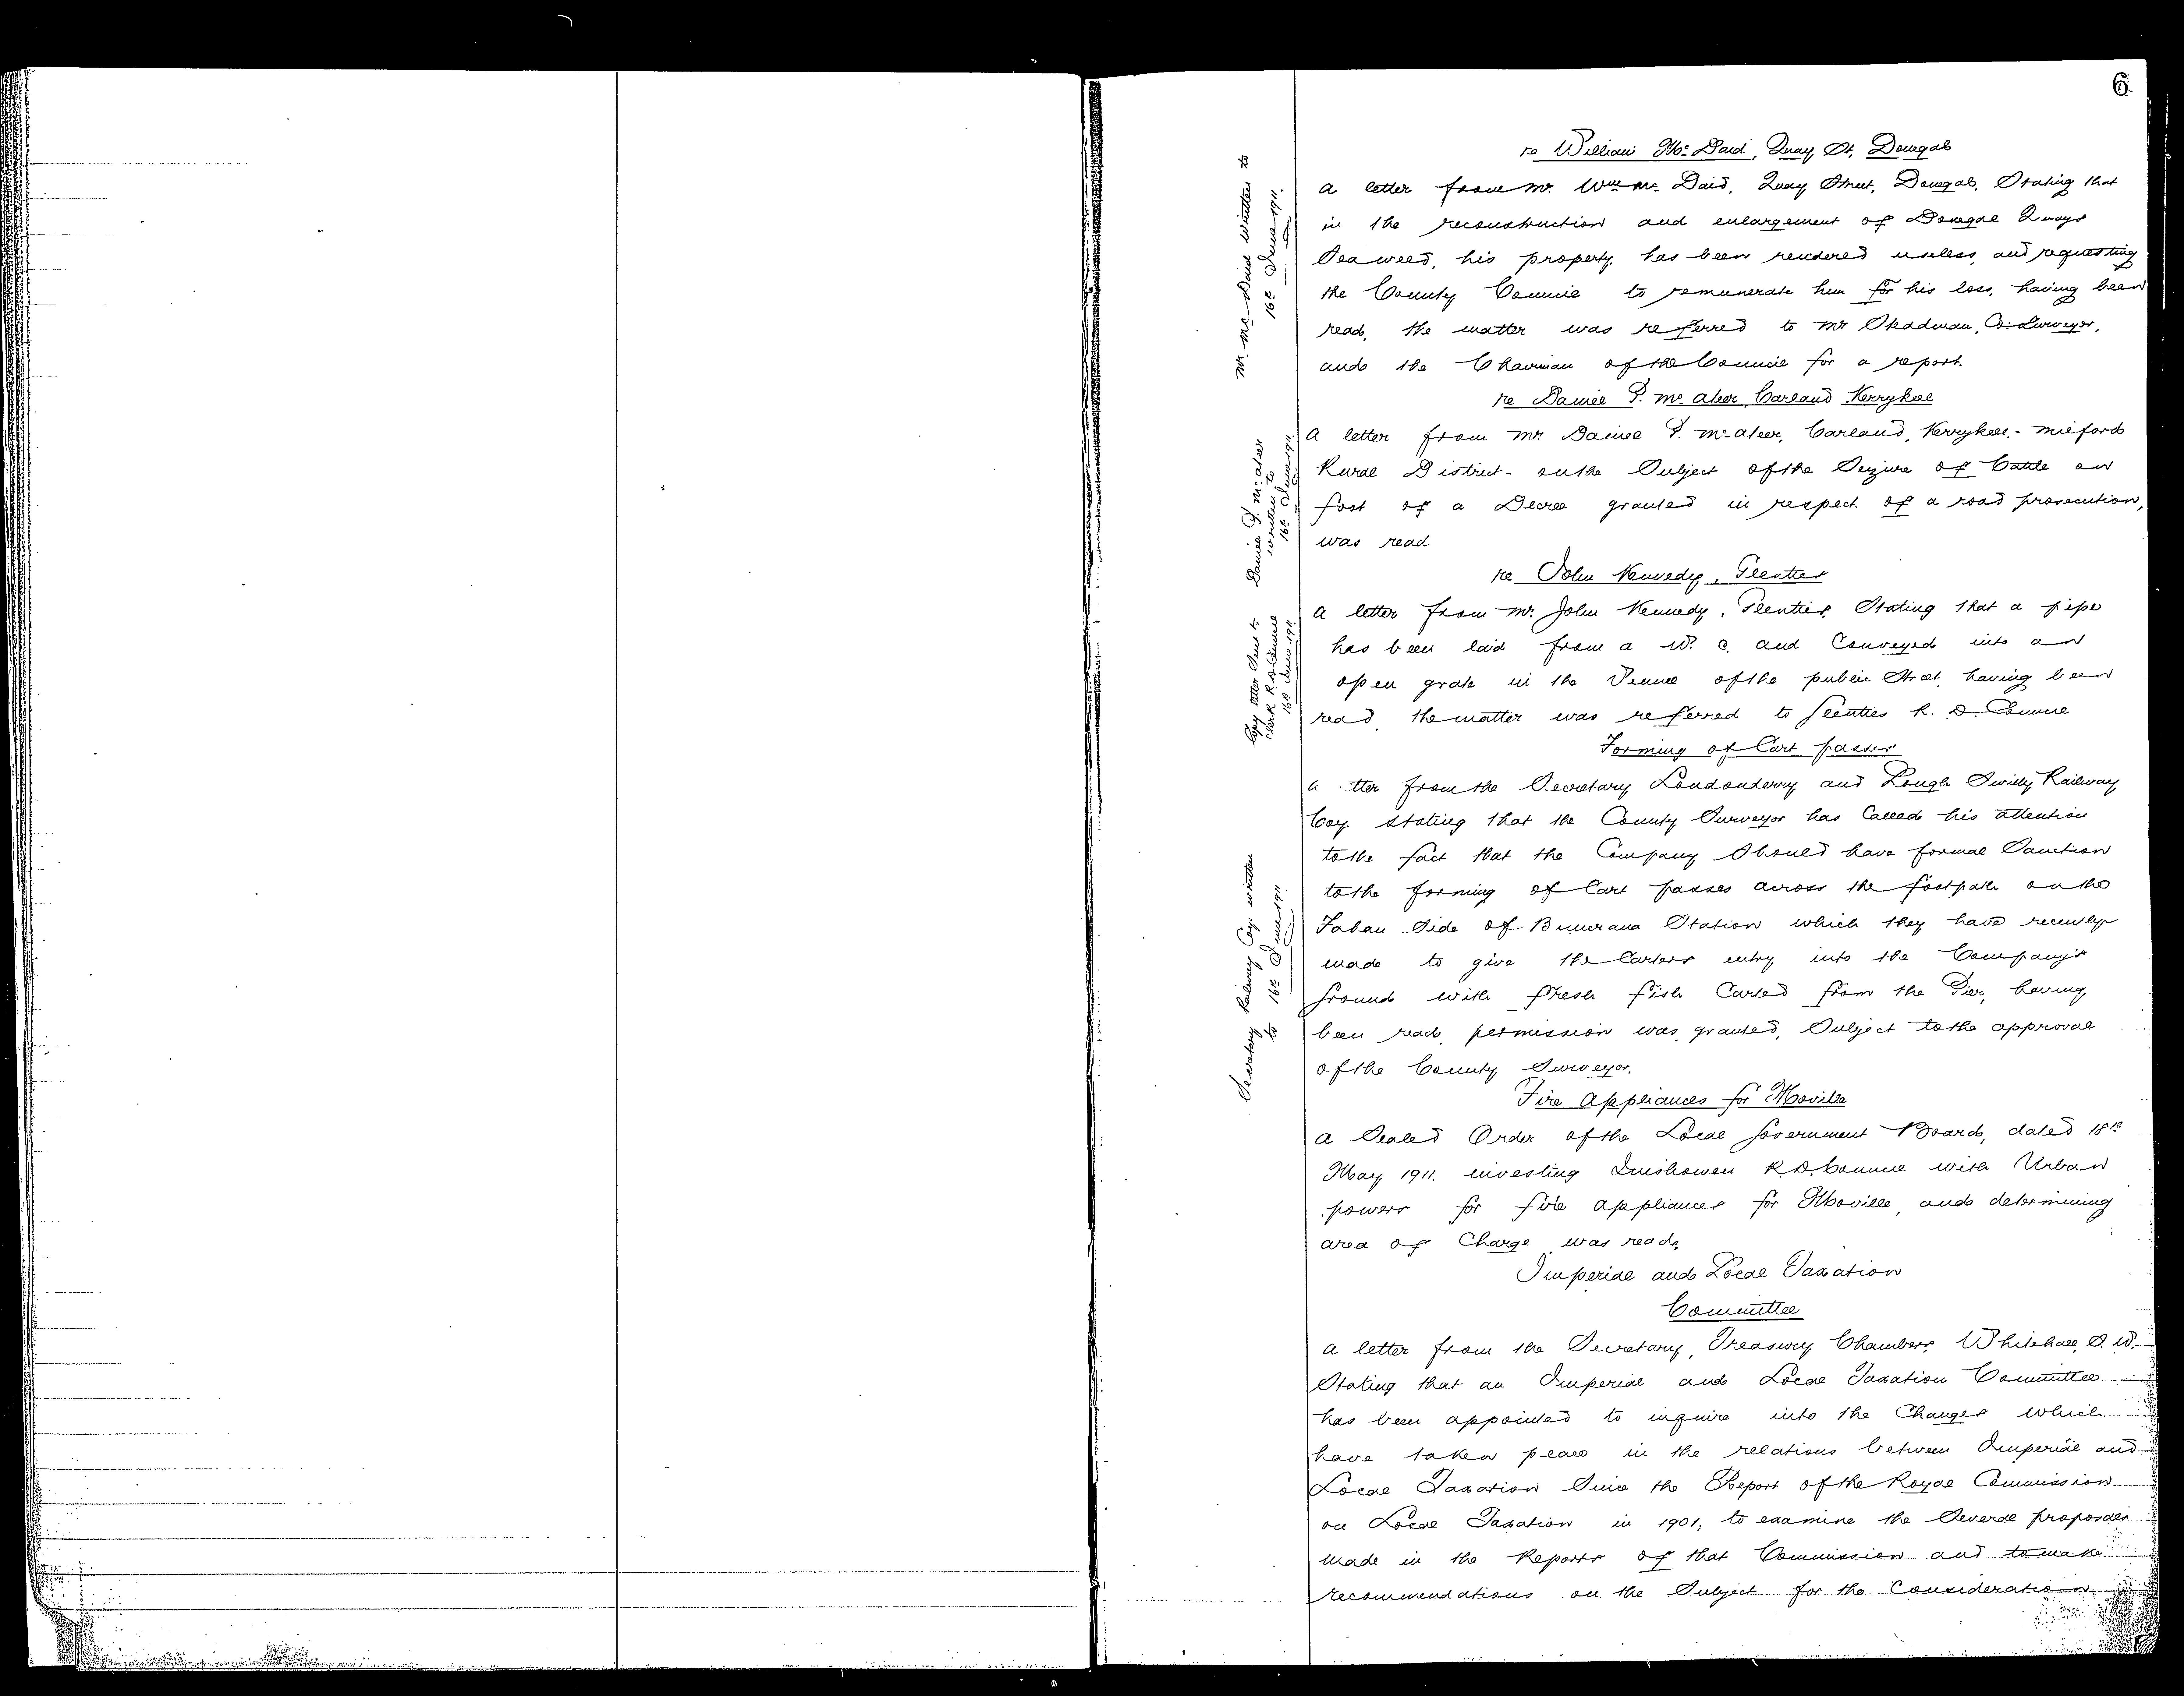 6.
re William Mc Daid, Quay St, Donegal
Mr. Mc Daid written to
16th June 1911.
A letter from Mr. Wm Mc Daid, Quay Street, Donegal, Stating that
in the reconstruction and enlargement of Donegal Quays
Seaweed, his property has been rendered useless, and requesting
the County Council to remunerate him for his loss, having been
read, the matter was referred to Mr Steadman, Co: Surveyor,
and the Chairman of the Council for a report.
re Daniel P. Mc Ateer, Carland, Kerrykeel
Daniel P. McAteer
written to
16th June 1911.
A letter from Mr. Daniel P. McAteer, Carland, Kerrykeel, - Milford
Rural District - on the Subject of the Seizure of Cattle on
foot of a Decree granted in respect of a road prosecution,
was read
re John Kennedy, Glenties
Copy letter Sent to
Clerk R. D. Council
16th June 1911.
A letter from Mr. John Kennedy, Glenties, Stating that a pipe
has been laid from a W. C. and Conveyed into an
open grate in the Venue of the public Street, having been
read, the matter was referred to Glenties R. D. Council
Forming of Cart passes
Secretary Railway Coy. written
to 16th June 1911.
A tter from the Secretary Londonderry and Lough Swilly Railway
Coy. stating that the County Surveyor has Called his attention
to the fact that the Company Should have formal Sanction
to the forming of Cart passes across the footpath on the
Fahan Side of Buncrana Station which they have recently
made to give the Carters entry into the Company's
ground with fresh fish Carted from the Pier, having
been read, permission was granted, Subject to the approval
of the County Surveyor.
Fire Appliances for Moville
A Sealed Order of the Local Government Board, dated 18th
May 1911. investing Inishowen R.D. Council with Urban
powers for fire appliances for Moville, and determining
area of Charge was read,
Imperial and Local Taxation
Committee
A letter from the Secretary, Treasury Chambers, Whitehall, S. W.
Stating that an Imperial and Local Taxation Committee
has been appointed to inquire into the Changes which
have taken place in the relations between Imperial and
Local Taxation Since the Report of the Royal Commission
on Local Taxation in 1901, to examine the Several proposals
made in the Reports of that Commission and to make
recommendations on the Subject for the Consideration